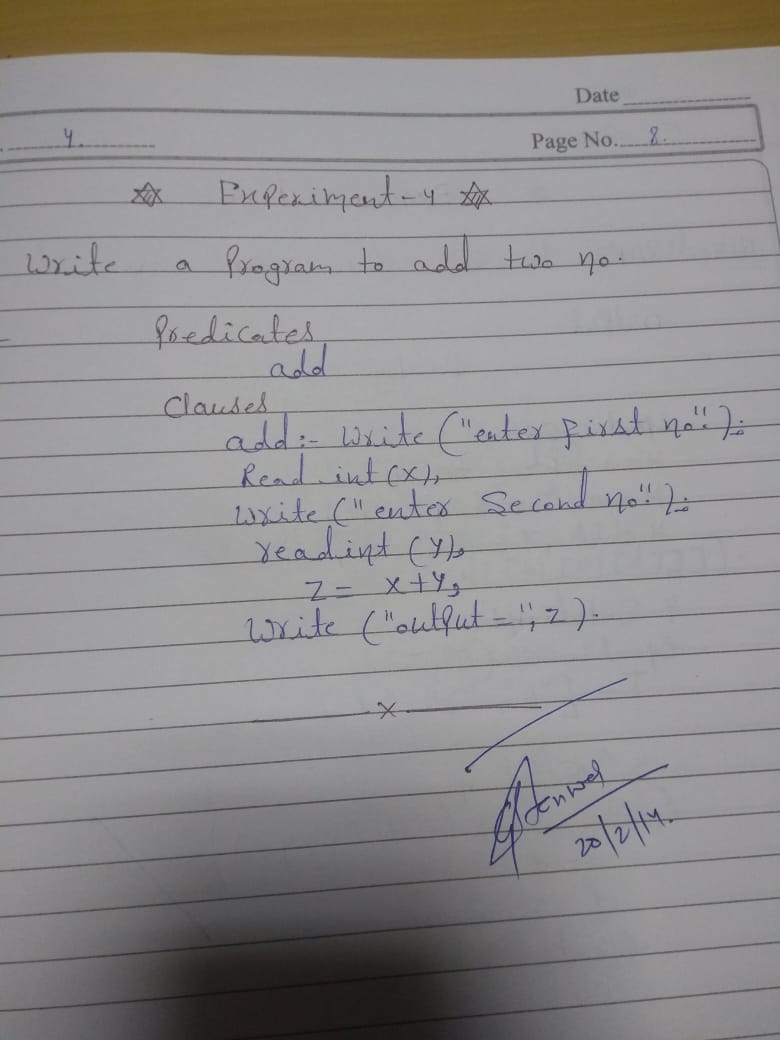 Date
4.
Page No. 8.
Experiment-4
Write a Program to add two no.
Predicates
add
Clauses
add:- Write ("enter first no.");
Read int (X),
Write ("enter Second no.");
readint (Y),
Z = X+Y,
Write ("output=", Z).
x
20/2/14.